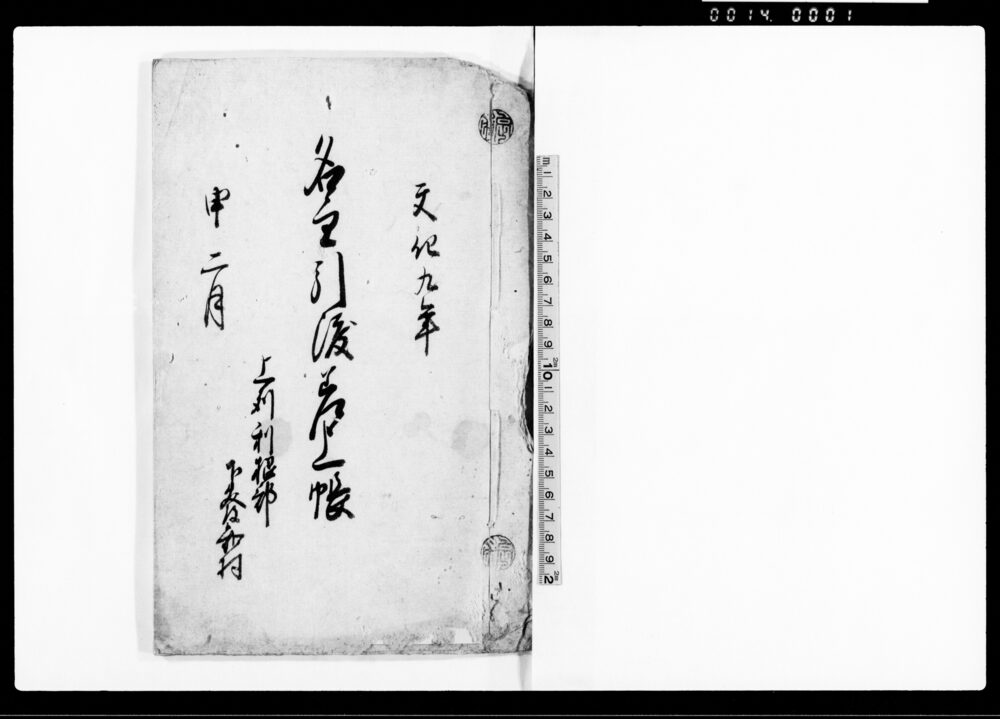 0014 0001
文化九年
名主引渡書上帳
申 二月
上州利根郡
下発知村
m 1 2 3 4 5 6 7 8 9 10 1 2 3 4 5 6 7 8 9 2